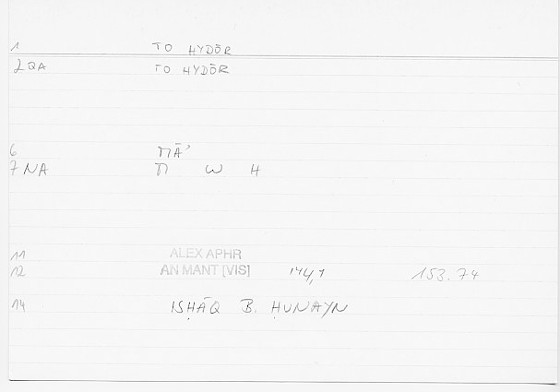 1 TO HYDŌR
2 QA TO HYDŌR
6 MĀʾ
7 NA M W H
11 ALEX APHR
12 AN MANT [VIS] 144,1 153.74
14 ISḤĀQ B. ḤUNAYN